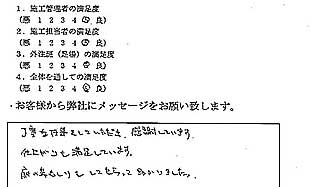 1．施工管理者の満足度
(悪 1 2 3 4 ⑤ 良)
2．施工担当者の満足度
(悪 1 2 3 4 ⑤ 良)
3．外注業（足場）の満足度
(悪 1 2 3 4 ⑤ 良)
4．全体を通しての満足度
(悪 1 2 3 4 ⑤ 良)
・お客様から弊社にメッセージをお願い致します。
丁寧な仕事をしていただき、感謝しています。
仕上がりも満足しています。
庭の草むしりもしてもらって助かりました。